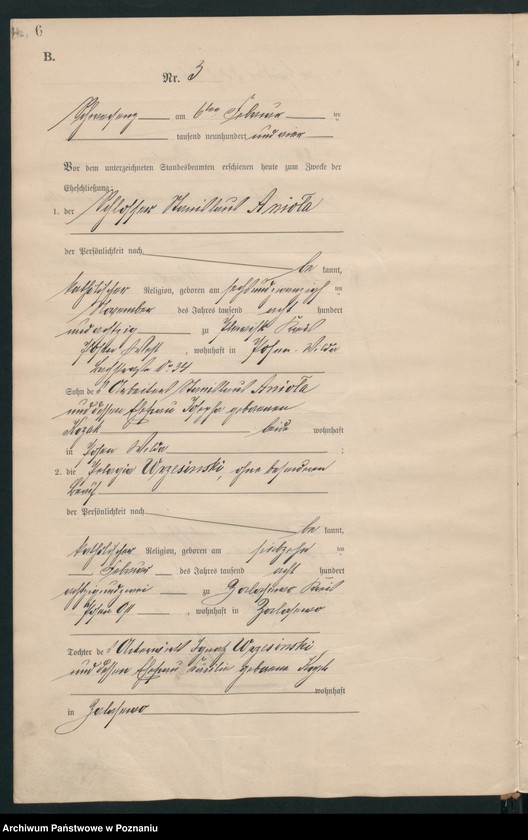 6
B.
Nr. 3
am 6ten Februar
tausend neunhundert und vier
Vor dem unterzeichneten Standesbeamten erschienen heute zum Zwecke der
Eheschließung:
1. der Schlosser Stanislaus Anioła
der Persönlichkeit nach
be kannt,
katholischer Religion, geboren am sechsundzwanzig ten
November des Jahres tausend acht hundert
und achtzig zu Kreis
Posen West, wohnhaft in Posen - Wilda
No 34
Sohn des Arbeiters Stanislaus Anioła
und dessen Ehefrau Josepha geborenen
Kozak beide wohnhaft
in Posen Wilda ;
2. die Pelagia Wrzesinski, ohne besonderen
Beruf
der Persönlichkeit nach
be kannt,
katholischer Religion, geboren am siebzehn ten
Februar des Jahres tausend acht hundert
achtzigundzwei zu Zalasewo Kreis
Posen Ost, wohnhaft in Zalasewo
Tochter des Ackerwirts Ignatz Wrzesinski
und dessen Ehefrau Cäcilie geborene
wohnhaft
in Zalasewo
Archiwum Państwowe w Poznaniu